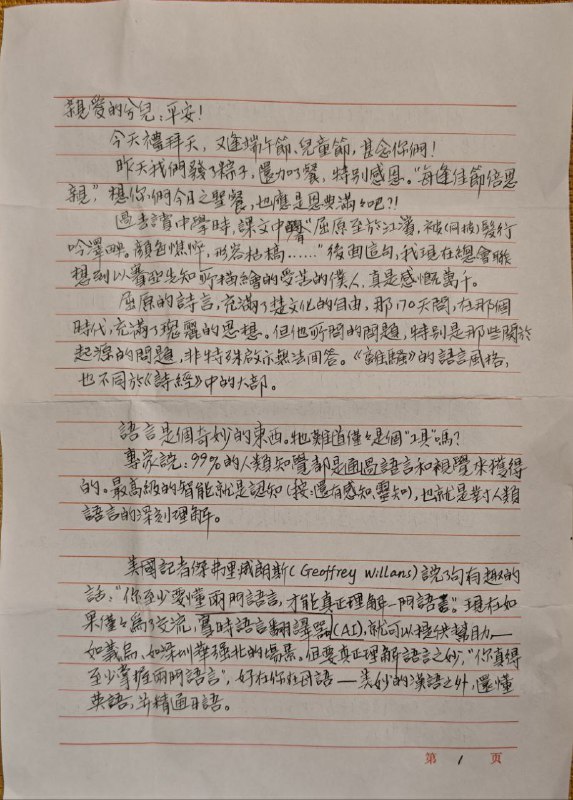 親愛的兒：平安！
今天禮拜天，又逢端午節、兒童節，甚念你們！
昨天我們發了粽子，還加了餐，特别感恩。“每逢佳節倍思
親”，想你們今日之聖餐，也應是恩典滿滿吧？！
過去讀中學時，課文中“屈原至於江濱，被（同披）髮行
吟澤畔，顔色憔悴，形容枯槁……”後面這句，我現在總會聯
想到以賽亞先知所描繪的受苦的僕人，真是感慨萬千。
屈原的詩言，充滿了楚文化的自由，那170天問，在那個
時代，充滿了瑰麗的思想。但他所問的問題，特别是那些關於
起源的問題，非特殊啟示無法回答。《離騷》的語言風格，
也不同於《詩經》中的大部。
語言是個奇妙的東西。牠難道僅僅是個“工具”嗎？
專家説：99%的人類知覺都是通過語言和視覺來獲得
的。最高級的智能就是認知（按：還有感知、靈知），也就是對人類
語言的深刻理解。
美國記者傑弗里威朗斯（Geoffrey Willans）説了句有趣的
話：“你至少要懂兩門語言，才能真正理解一門語言”。現在如
果僅僅爲了交流，實時語言翻譯器（AI），就可以提供幫助—
如義烏、如深圳華强北的場景。但要真正理解語言之妙，“你真得
至少掌握兩門語言”，好在你在母語—美妙的漢語之外，還懂
英語，并精通日語。
第 1 页